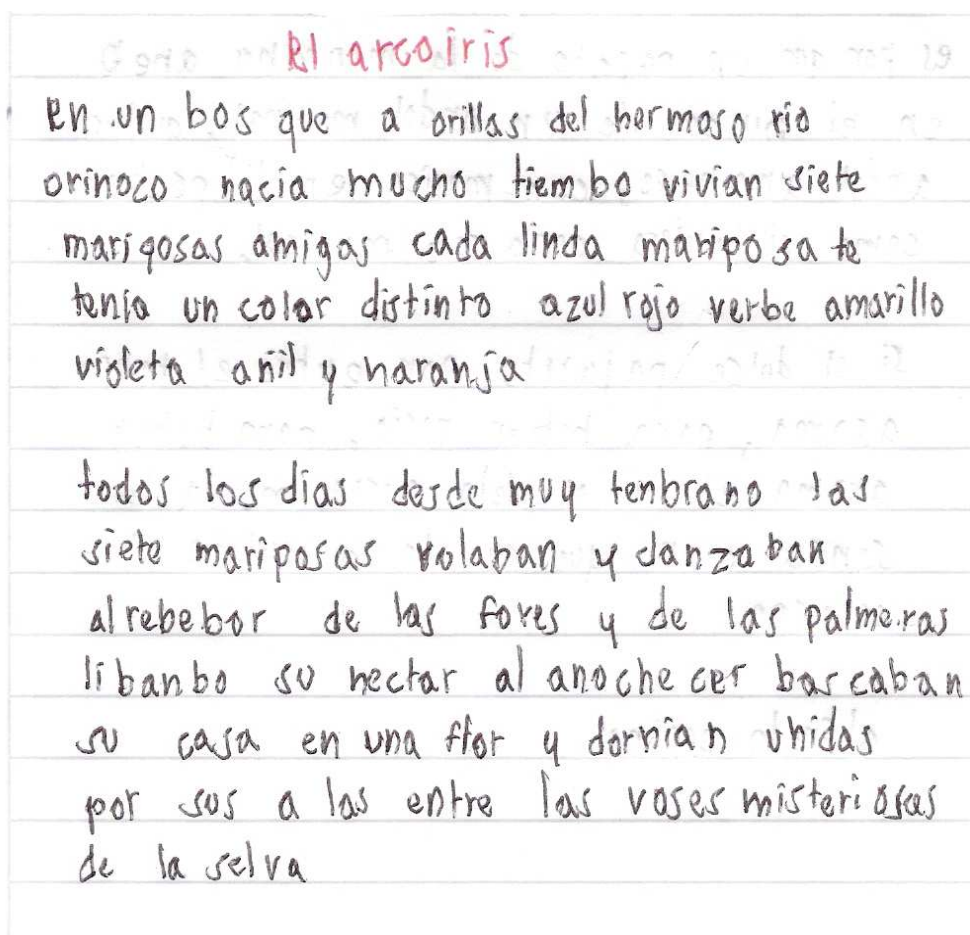 El arcoiris
en un bos que a orillas del hermoso rio
orinoco nacia mucho tiembo vivian siete
marigosas amigas cada linda maripo sa te
tenia un color distinto azul rojo verbe amarillo
violeta anil y naranja
todos los dias desde muy tenbrano las
siete mariposas volaban y danzaban
al rebebor de las fores y de las palmeras
libanbo su nectar al anoche cer bascaban
su casa en una flor y dornian unidas
por sus a las entre las voses misteriosas
de la selva